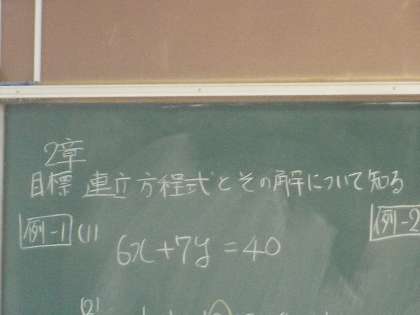 2章
目標 連立方程式とその解について知る
例-1 (1)
6x+7y=40
例-2
(2)